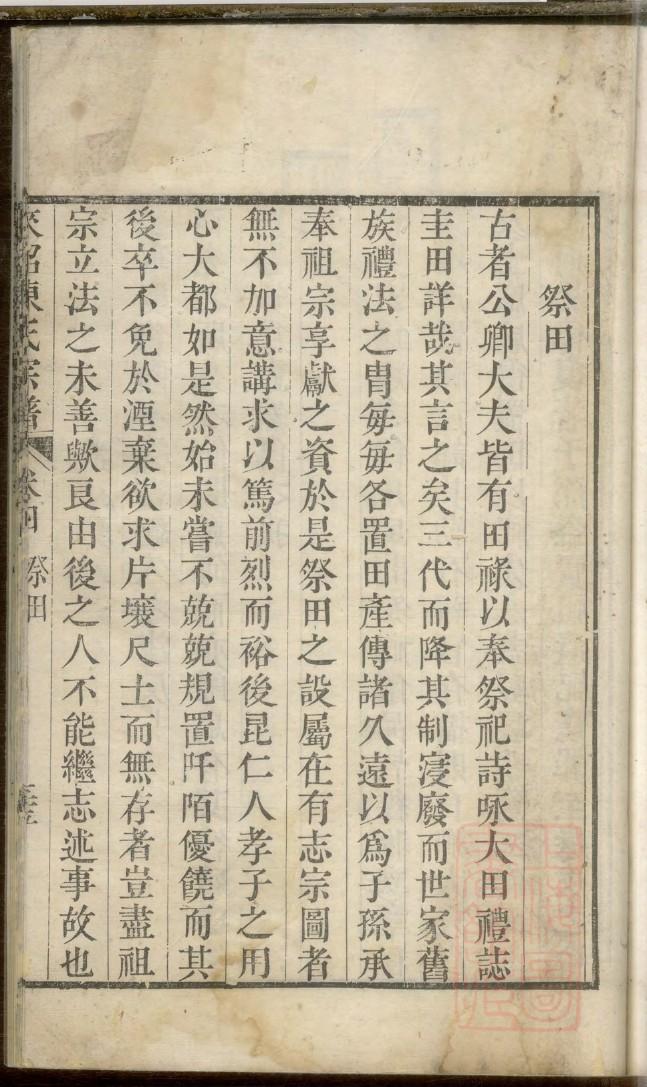 祭田
古者公卿大夫皆有田祿以奉祭祀詩咏大田禮誌
圭田詳哉其言之矣三代而降其制寖廢而世家舊
族禮法之胄每每各置田產傳諸久遠以爲子孫承
奉祖宗享獻之資於是祭田之設屬在有志宗圖者
無不加意講求以篤前烈而裕後昆仁人孝子之用
心大都如是然始未嘗不兢兢規置阡陌優饒而其
後卒不免於湮棄欲求片壤尺土而無存者豈盡祖
宗立法之未善歟良由後之人不能繼志述事故也
陳氏宗譜 卷四 祭田